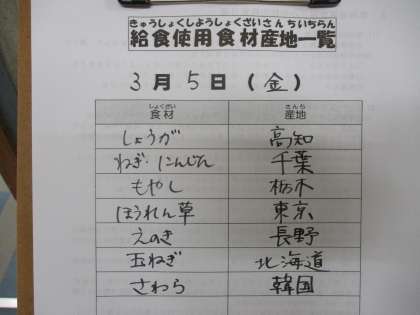 きゅうしょくしようしょくざいさんちいちらん
給食使用食材産地一覧
3月5日(金)
しょくざい さんち
食材 産地
しょうが 高知
ねぎ・にんじん 千葉
もやし 栃木
ほうれん草 東京
えのき 長野
玉ねぎ 北海道
さわら 韓国